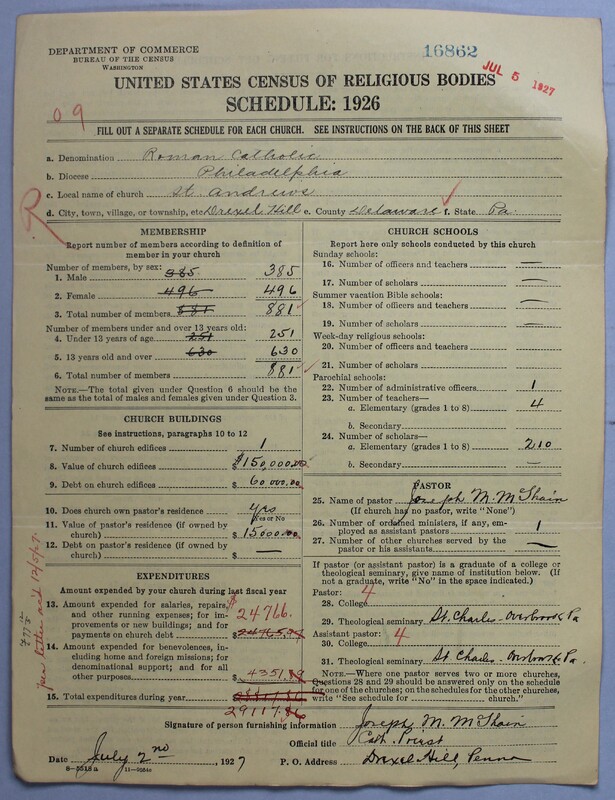 DEPARTMENT OF COMMERCE
BUREAU OF THE CENSUS
WASHINGTON
16862
JUL 5 1927
UNITED STATES CENSUS OF RELIGIOUS BODIES
SCHEDULE: 1926
09
FILL OUT A SEPARATE SCHEDULE FOR EACH CHURCH. SEE INSTRUCTIONS ON THE BACK OF THIS SHEET
a. Denomination Roman Catholic
b. Diocese Philadelphia
c. Local name of church St. Andrews
d. City, town, village, or township, etc Drexel Hill e. County Delaware f. State Pa.
R
MEMBERSHIP
Report number of members according to definition of member in your church
Number of members, by sex:
1. Male 385 385
2. Female 496 496
3. Total number of members 881 881
Number of members under and over 13 years old:
4. Under 13 years of age 251 251
5. 13 years old and over 630 630
6. Total number of members 881
NOTE.—The total given under Question 6 should be the same as the total of males and females given under Question 3.
CHURCH BUILDINGS
See instructions, paragraphs 10 to 12
7. Number of church edifices 1
8. Value of church edifices $150,000.00
9. Debt on church edifices $ 60,000.00
10. Does church own pastor's residence yes
Yes or No
11. Value of pastor's residence (if owned by church) $15000.00
12. Debt on pastor's residence (if owned by church) $ —
EXPENDITURES
Amount expended by your church during last fiscal year
13. Amount expended for salaries, repairs, and other running expenses; for improvements or new buildings; and for payments on church debt $ 24766.
14. Amount expended for benevolences, including home and foreign missions; for denominational support; and for all other purposes 4351
15. Total expenditures during year
29117
per letter
CHURCH SCHOOLS
Report here only schools conducted by this church
Sunday schools:
16. Number of officers and teachers —
17. Number of scholars —
Summer vacation Bible schools:
18. Number of officers and teachers —
19. Number of scholars —
Week-day religious schools:
20. Number of officers and teachers
21. Number of scholars —
Parochial schools:
22. Number of administrative officers 1
23. Number of teachers—
a. Elementary (grades 1 to 8) 4
b. Secondary
24. Number of scholars—
a. Elementary (grades 1 to 8) 210
b. Secondary —
PASTOR
25. Name of pastor Joseph M. McShain
(If church has no pastor, write "None")
26. Number of ordained ministers, if any, employed as assistant pastors 1
27. Number of other churches served by the pastor or his assistants —
If pastor (or assistant pastor) is a graduate of a college or theological seminary, give name of institution below. (If not a graduate, write "No" in the space indicated.)
Pastor: 4
28. College
29. Theological seminary St. Charles - Overbrook Pa
Assistant pastor: 4
30. College
31. Theological seminary St. Charles - Overbrook Pa.
NOTE.—Where one pastor serves two or more churches, Questions 28 and 29 should be answered only on the schedule for one of the churches; on the schedules for the other churches, write "See schedule for church."
Signature of person furnishing information Joseph M. McShain
Official title Cath. Priest
Date July 2nd, 1927 P. O. Address Drexel Hill, Penna
8—5518 a